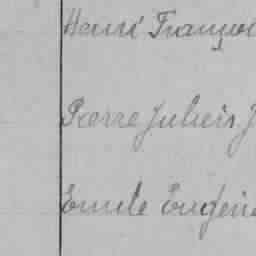 Henri François
Pierre Julien J
Emile Eugène